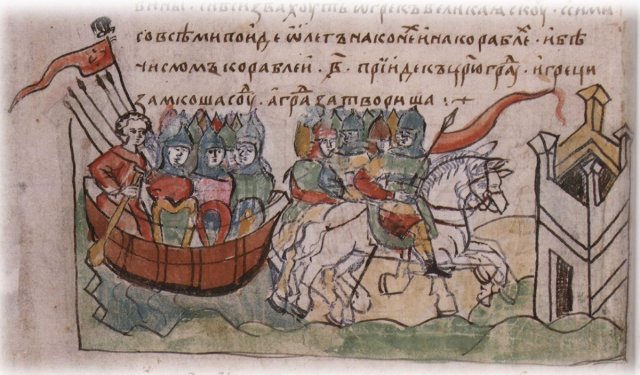 со всѣми поиде ѿлегъ на конеи и на кораблѣ · и бѣ
числомъ кораблеи · в҃ · прїиде къ цр҃югра д҇ у · и греци
замкоша соу д҇ · а гра д҇ затвориша :+